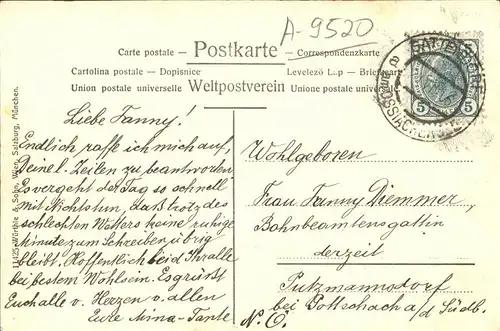 A-9520
Carte postale – Postkarte – Correspondenzkarte
Cartolina postale – Dopisnice Levelező Lap – Briefkaart
Union postale universelle Weltpostverein Unione postale universelle
5 5
SATTENDORF
OSSIACHERSEE
Würthle & Sohn, Wien, Salzburg, München.
Liebe Fanny!
Endlich raffe ich mich auf,
Deine l. Zeilen zu beantworten
Es vergeht der Tag so schnell
mit Nichtstun, daß trotz des
schlechten Wetters keine ruhige
Minute zum Schreiben übrig
bleibt. Hoffentlich seid Ihr alle
bei bestem Wohlsein. Es grüßt
Euch alle v. Herzen v. allen
Eure Mina-Tante
Wohlgeboren
Frau Fanny Diemmer,
Bahnbeamtensgattin
derzeit
Putzmannsdorf
bei Gottschach a/d Südb.
N. Ö.